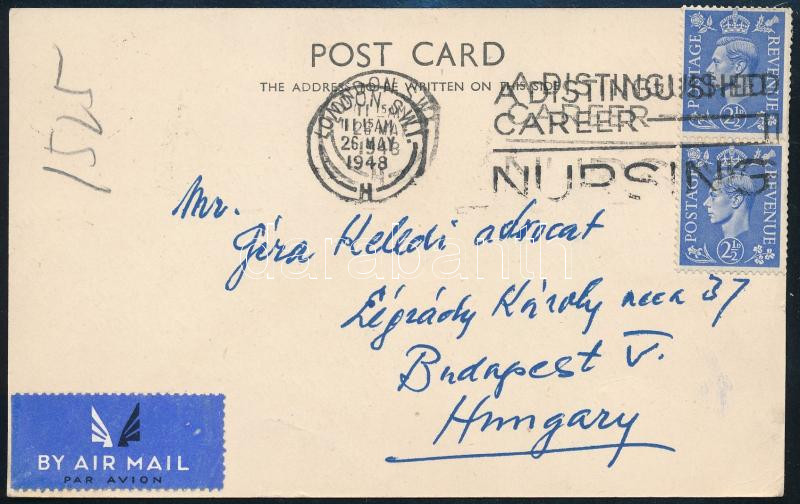 POST CARD
THE ADDRESS TO BE WRITTEN ON THIS SIDE
1525
LONDON. S.W.1.
11 15 AM
26 MAY
1948
H
A DISTINGUISHED
CAREER
NURSING
POSTAGE REVENUE
2½D
POSTAGE REVENUE
2½D
Mr.
Géza Kelledi advocat
Légrády Károly ucca 37
Budapest V.
Hungary
BY AIR MAIL
PAR AVION
darabanth